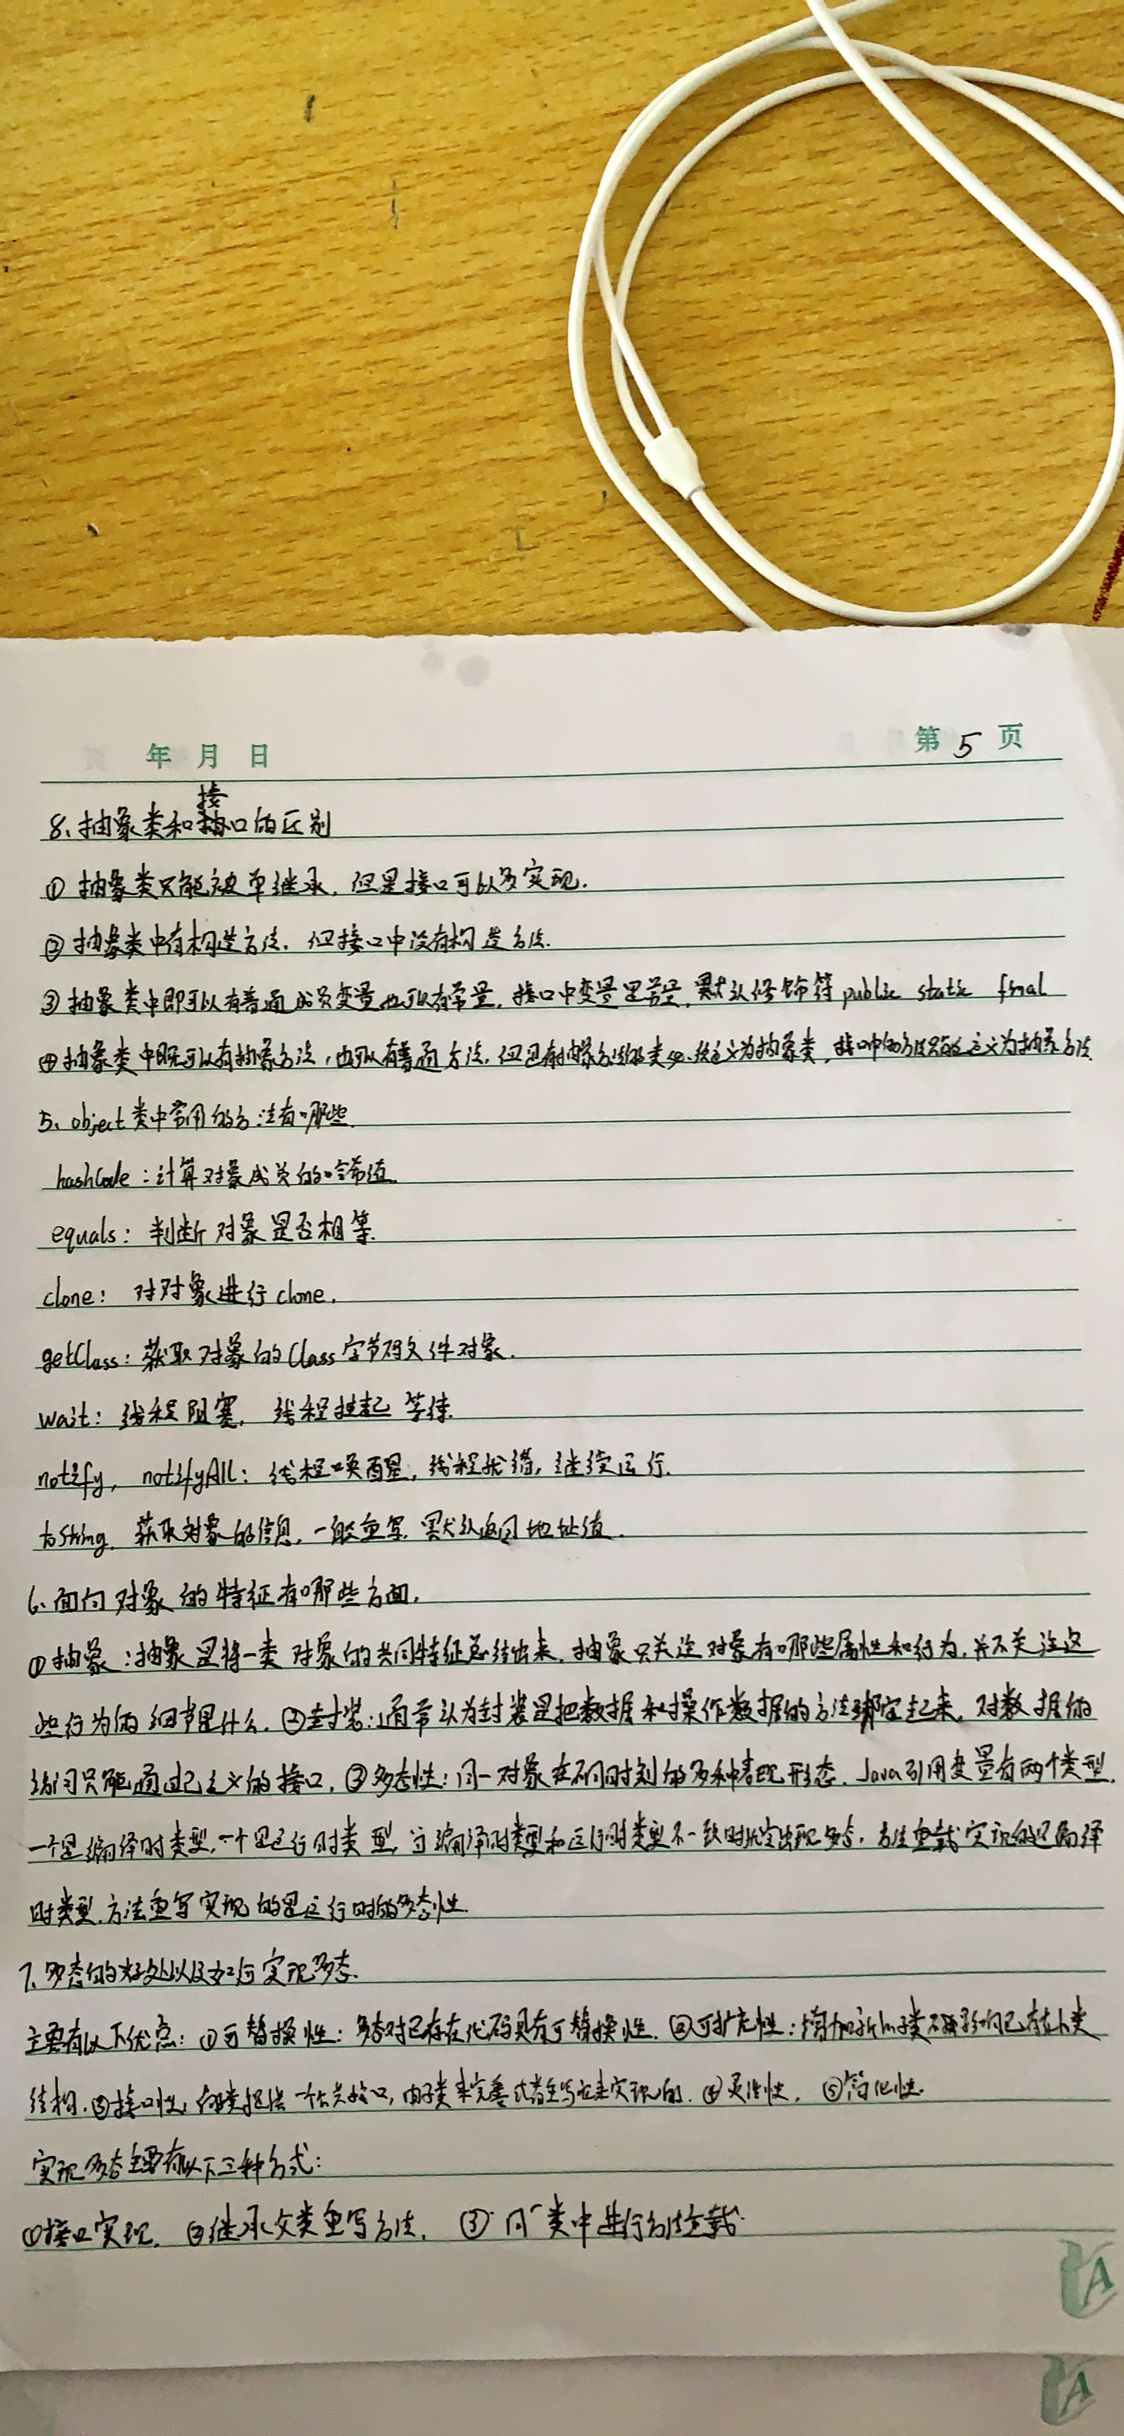 年 月 日 第 5 页
8、抽象类和接口的区别
① 抽象类只能被单继承，但是接口可以多实现.
② 抽象类中有构造方法，但接口中没有构造方法.
③ 抽象类中即可以有普通成员变量也可以有常量，接口中变量是常量，默认修饰符 public static final
④ 抽象类中既可以有抽象方法，也可以有普通方法，但只有抽象方法的类必须定义为抽象类，接口中的方法只能定义为抽象方法
5、object类中常用的方法有哪些
hashCode：计算对象成员的哈希值.
equals：判断对象是否相等.
clone：对对象进行clone.
getClass：获取对象的Class字节码文件对象.
wait：线程阻塞，线程挂起 等待.
notify，notifyAll：线程唤醒，线程就绪，继续运行.
toString. 获取对象的信息，一般重写，默认返回地址值.
6、面向对象的特征有哪些方面.
① 抽象：抽象是将一类对象的共同特征总结出来，抽象只关注对象有哪些属性和行为，并不关注这
些行为的细节是什么. ②封装：通常认为封装是把数据和操作数据的方法绑定起来，对数据的
访问只能通过已定义的接口，③多态性：同一对象在不同时刻的多种表现形态. Java引用变量有两个类型，
一个是编译时类型，一个是运行时类型，当编译时类型和运行时类型不一致时就会出现多态，方法重载实现的是编译
时类型，方法重写实现的是运行时的多态性.
7、多态的好处以及如何实现多态.
主要有以下优点：①可替换性：多态对已存在代码具有可替换性. ②可扩充性：增加新的子类不影响已存在类
结构. ③接口性：父类提供一个公共接口，由子类来完善或者重写它来实现的. ④灵活性. ⑤简化性.
实现多态主要有以下三种方式：
①接口实现. ②继承父类重写方法. ③ 同一类中进行方法重载.